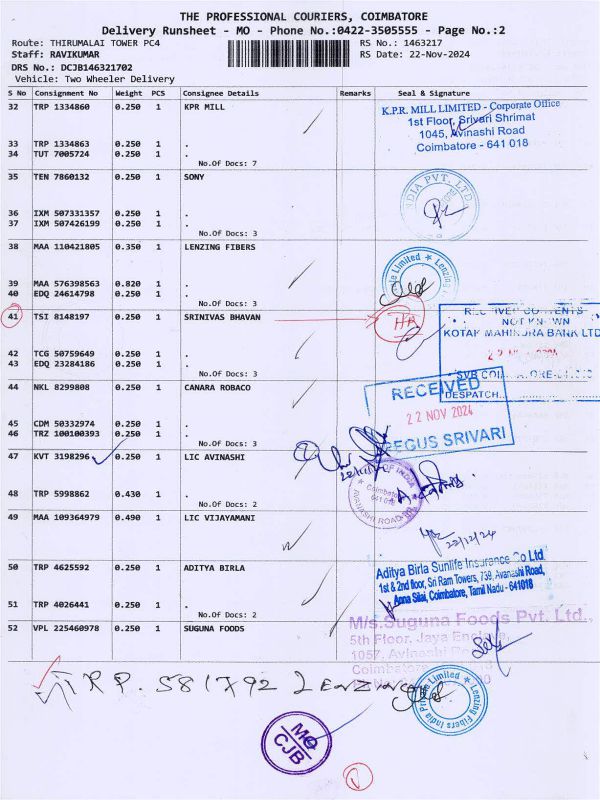 THE PROFESSIONAL COURIERS, COIMBATORE
Delivery Runsheet - MO - Phone No.:0422-3505555 - Page No.:2
Route: THIRUMALAI TOWER PC4 RS No.: 1463217
Staff: RAVIKUMAR RS Date: 22-Nov-2024
DRS No.: DCJB146321702
Vehicle: Two Wheeler Delivery
S No Consignment No Weight PCS Consignee Details Remarks Seal & Signature
32 TRP 1334860 0.250 1 KPR MILL
K.P.R. MILL LIMITED - Corporate Office
1st Floor, Srivari Shrimat
1045, Avinashi Road
Coimbatore - 641 018
33 TRP 1334863 0.250 1 .
34 TUT 7005724 0.250 1 .
No.Of Docs: 7
35 TEN 7860132 0.250 1 SONY
INDIA PVT. LTD.
36 IXM 507331357 0.250 1 .
37 IXM 507426199 0.250 1 .
No.Of Docs: 3
38 MAA 110421805 0.350 1 LENZING FIBERS
Limited Lenzing
39 MAA 576398563 0.820 1 .
40 EDQ 24614798 0.250 1 .
No.Of Docs: 3
41 TSI 8148197 0.250 1 SRINIVAS BHAVAN
HR
RECEIVED CONTENTS
NOT KNOWN
KOTAK MAHINDRA BANK LTD
42 TCG 50759649 0.250 1 .
43 EDQ 23284186 0.250 1 .
No.Of Docs: 3
DESPATCH
44 NKL 8299808 0.250 1 CANARA ROBACO
RECEIVED
22 NOV 2024
REGUS SRIVARI
45 CDM 50332974 0.250 1 .
46 TRZ 100100393 0.250 1 .
No.Of Docs: 3
47 KVT 3198296 0.250 1 LIC AVINASHI
OF INDIA
Coimbatore
AVANASHI ROAD
48 TRP 5998862 0.430 1 .
No.Of Docs: 2
49 MAA 109364979 0.490 1 LIC VIJAYAMANI
22/12/24
50 TRP 4625592 0.250 1 ADITYA BIRLA
Aditya Birla Sunlife Insurance Co Ltd
1st & 2nd floor, Sri Ram Towers, 739, Avanashi Road,
Anna Silai, Coimbatore, Tamil Nadu - 641018
51 TRP 4026441 0.250 1 .
No.Of Docs: 2
52 VPL 225460978 0.250 1 SUGUNA FOODS
M/s.Suguna Foods Pvt. Ltd.,
5th Floor, Jaya Enclave,
1057, Avinashi Road
Coimbatore
TRP. 581792 Lenzing
Lenzing Fibers India Private Limited
MO
CJB